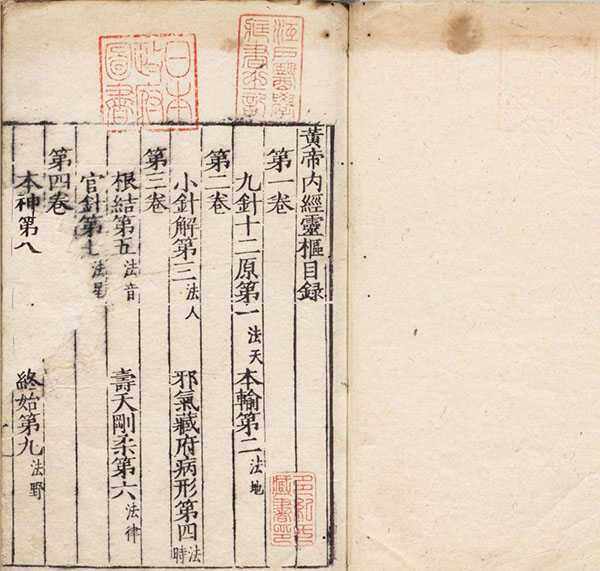 江戶醫學
藏書之記
日本
政府
圖書
黃帝內經靈樞目錄
第一卷
九針十二原第一 法天 本輸第二 法地
第二卷
小針解第三 法人 邪氣藏府病形第四 法時
第三卷
根結第五 法音 壽夭剛柔第六 法律
官針第七 法星
第四卷
本神第八 終始第九 法野
多紀氏
藏書印